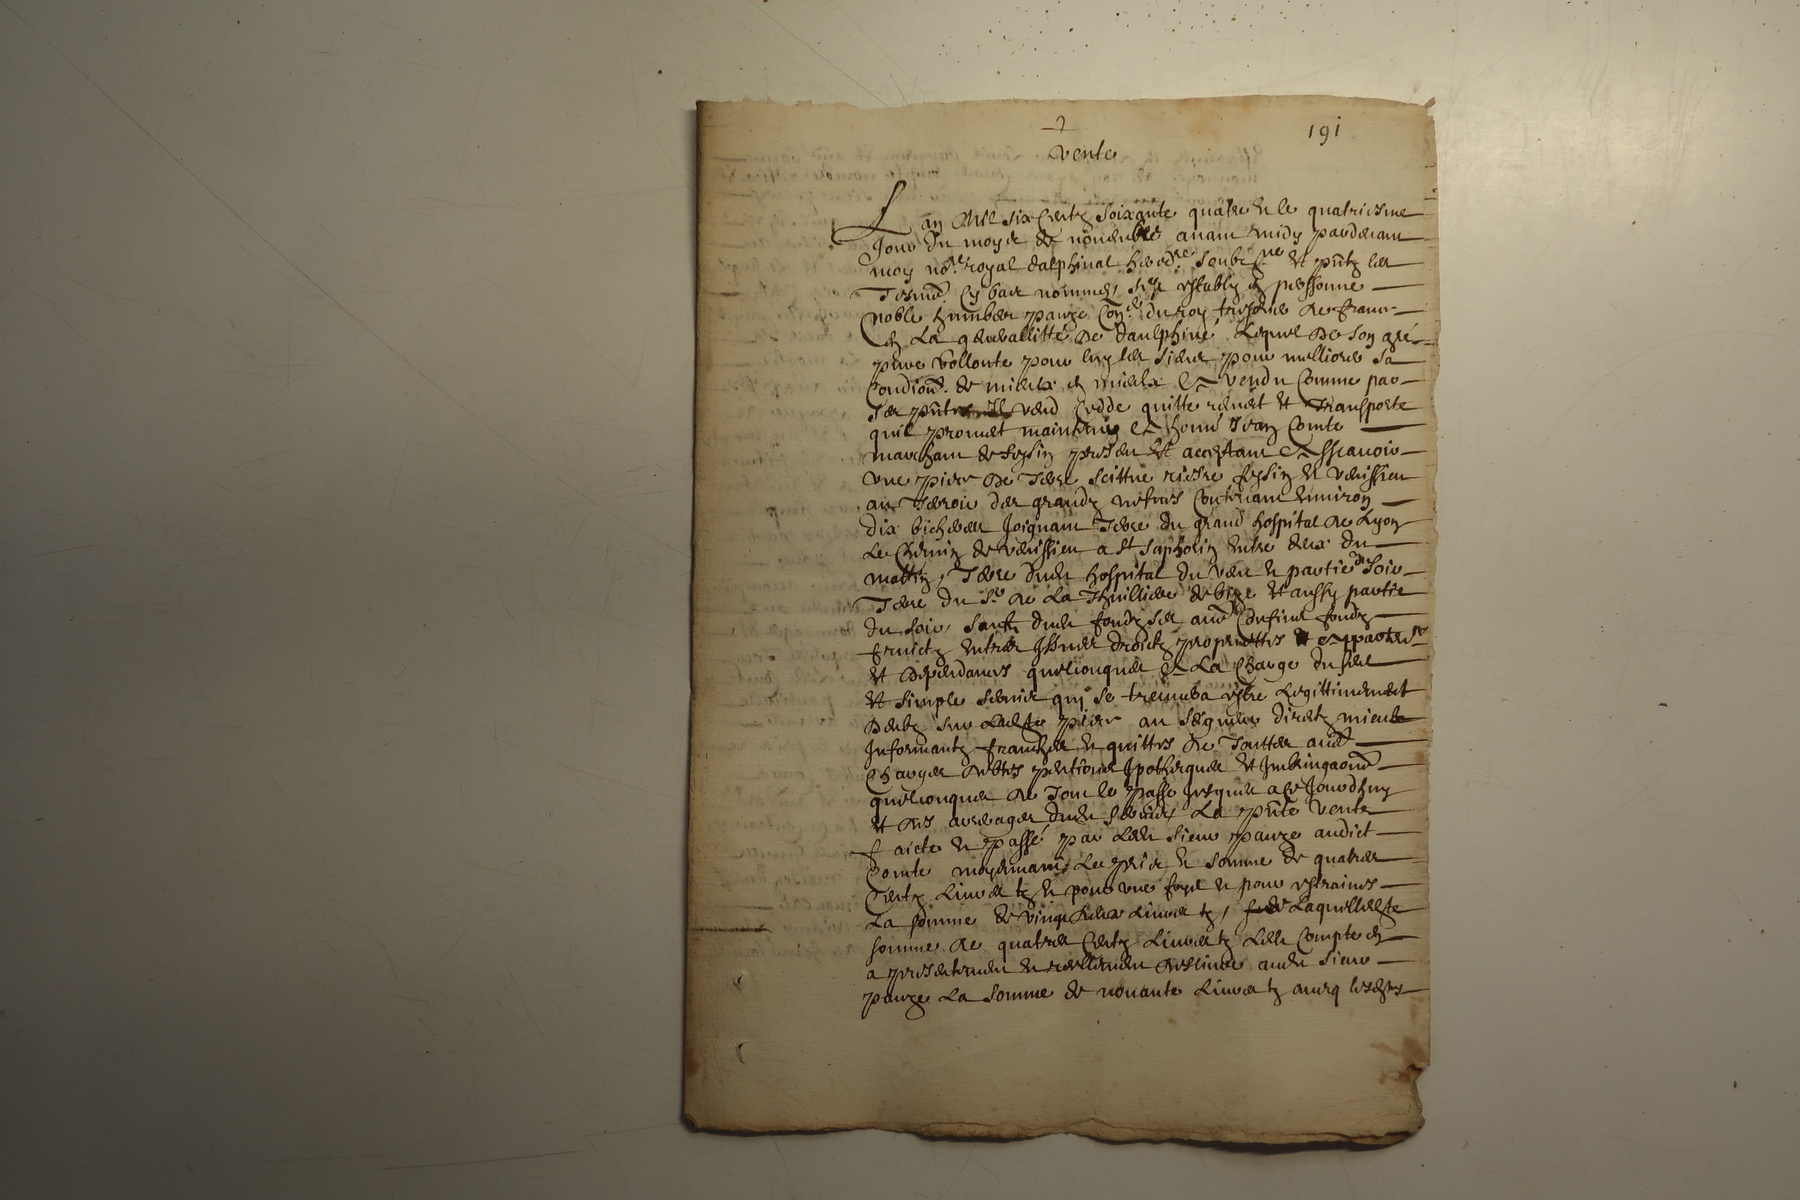 191
Vente
L an Mil six Centz Soixante quatre & le quatriesme
Jour du moys de novembre avant midy pardevant
moy no.re royal dalphinal soubz.ne & p̄ntz les
Tesmo. Cy bas nommes, s'est estably en personne
noble humber pauze Con.er du roy tresorier de france
en La generallitté De Daulphiné Lequel De son gré
pure vollonte pour luy les siens pour melliorer sa
Condion. de mieux en mieulx a vendu Comme par
Ses p̄ntes vend Cedde quitte remet et Transporte
quil promet maintenir a hon.e Jean Comte
marchant de feysin present & acceptant a Sscavoir
une piece De Terre scittue riesre feysin & Venissieu
au Terroir des grandz contenant Environ
dix bicherees Joignant Terre du grand hospital de Lyon
Le Chemin de Venissieu a St Saphorin Entre deux du
mattin, Terre dudt hospital du vent & partie du Soir
Terre du Sr de La Thuilliere de bize et aussy partie
du soir, sauf dudt fondz ses au.es Confins fondz
fruictz Entrees Issues droictz proprietes & appart.ces
et Dependances quelconques a La Charge du
et simple servis qui se treuvera estre Legittimement
Deub sur Ladte piece au Seigneur direct mieulx
Informantz franche & quitte de Touttes au.es
Charges debtes pentions Ipotheques et
quelconques de Tout le passe Jusques a ce Jourdhuy
et des arreages dudt Servis, La p̄nte Vente
faicte & Passé par Ledt Sieur pauze audict
Comte moyennant Le prix & somme de quatre
Centz Livres tz & pour une foys & pour estraines
La somme de vingt deux Livres tz, Laquelle dte
somme de quatre Centz Livres tz Ledt Compte en
a presentement & reellement deslivré audt Sieur
pauze La Somme de nonante Livres tz